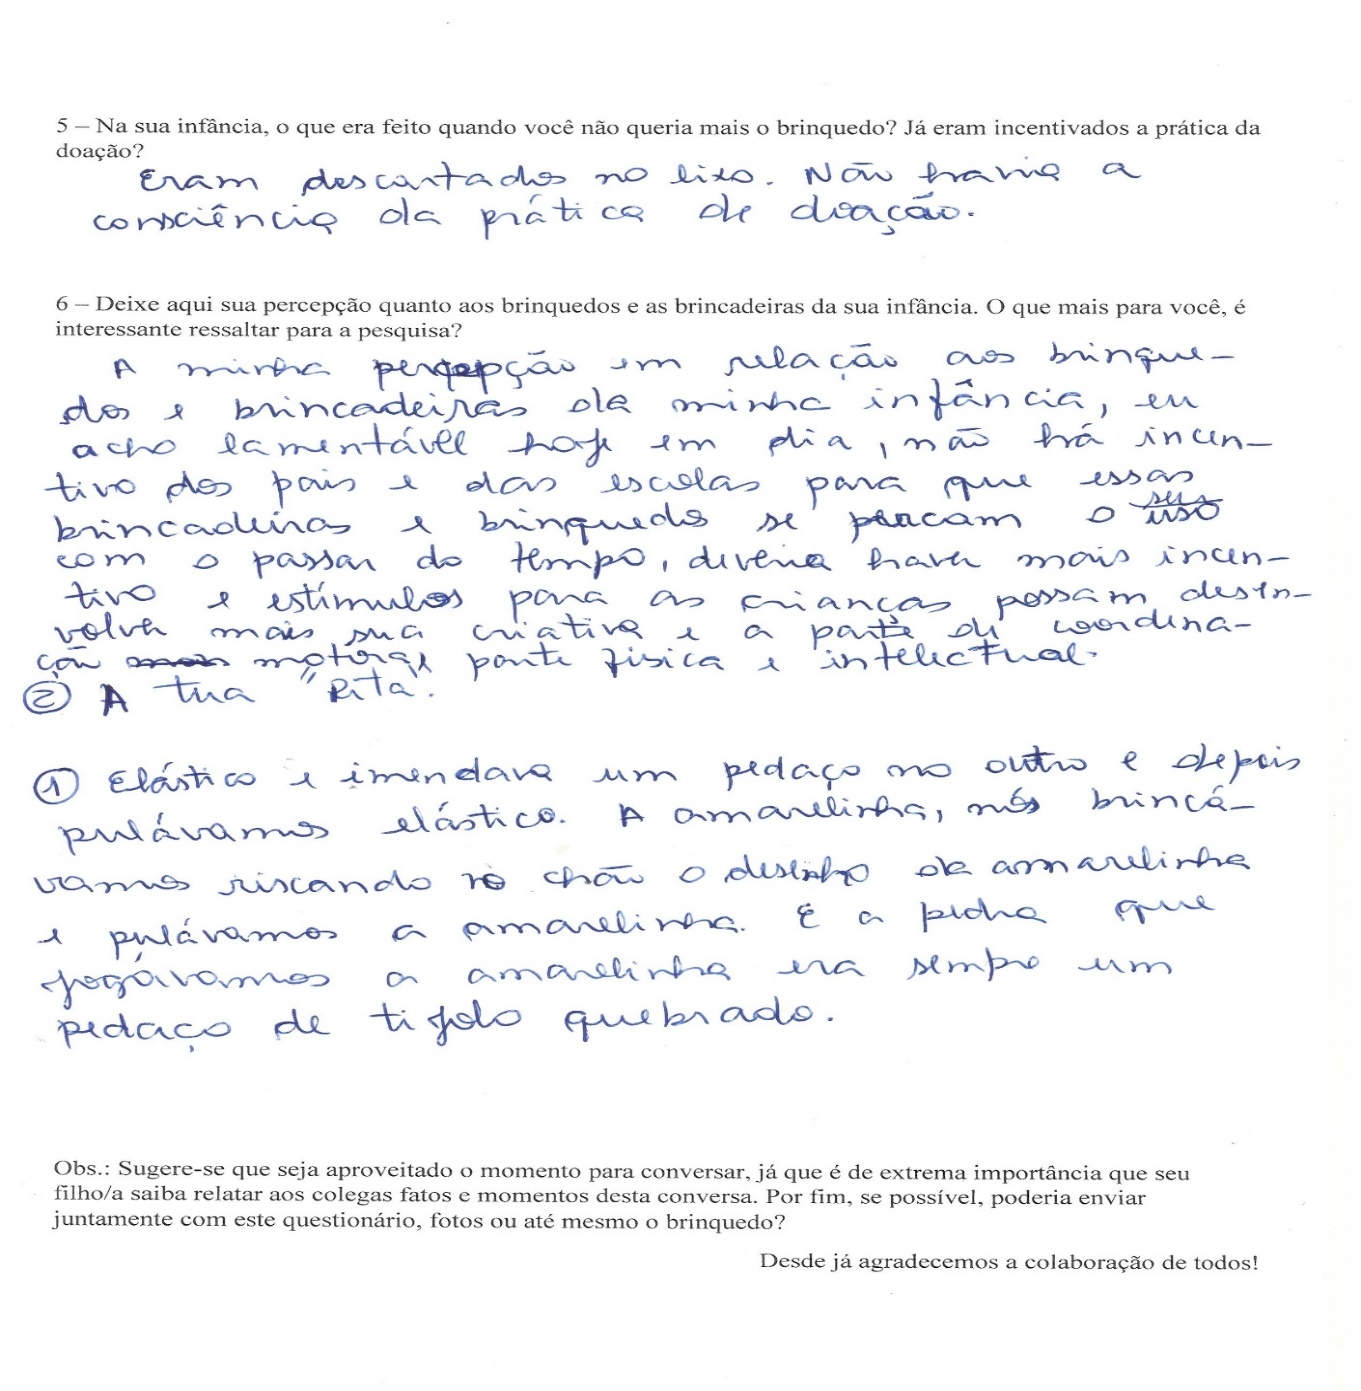 5 – Na sua infância, o que era feito quando você não queria mais o brinquedo? Já eram incentivados a prática da
doação?
Eram descartados no lixo. Não havia a
consciência da prática de doação.
6 – Deixe aqui sua percepção quanto aos brinquedos e as brincadeiras da sua infância. O que mais para você, é
interessante ressaltar para a pesquisa?
A minha percepção em relação aos brinque-
dos e brincadeiras da minha infância, eu
acho lamentável hoje em dia, não há incen-
tivo dos pais e das escolas para que essas
brincadeiras e brinquedos se percam o seu uso
com o passar do tempo, deveria haver mais incen-
tivo e estímulos para as crianças possam desen-
volver mais sua criativa e a parte de coordena-
ção motora, parte física e intelectual.
② A tua "Rita".
① Elástico e imendava um pedaço no outro e depois
pulávamos elástico. A amarelinha, nós brincá-
vamos riscando no chão o desenho da amarelinha
e pulávamos a amarelinha. E a pedra que
jogávamos a amarelinha era sempre um
pedaço de tijolo quebrado.
Obs.: Sugere-se que seja aproveitado o momento para conversar, já que é de extrema importância que seu
filho/a saiba relatar aos colegas fatos e momentos desta conversa. Por fim, se possível, poderia enviar
juntamente com este questionário, fotos ou até mesmo o brinquedo?
Desde já agradecemos a colaboração de todos!